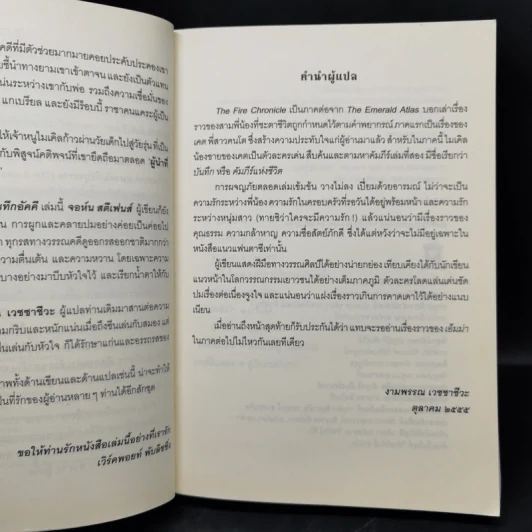 คดีที่มีตัวช่วยมากมายคอยประคับประคองเขา
ยชี้นำทางยามเขาเข้าตาจน และยังเป็นตัวแทน
น่นระหว่างเขากับพ่อ รวมถึงความเชื่อมั่นของ
แกเบรียล และยังมีร็อบบี้ ราชาคนแคระผู้เป็น
ให้เจ้าหนูไมเคิลก้าวผ่านวัยเด็กไปสู่วัยรุ่นที่เป็น
กับพิสูจน์คติพจน์ที่เขายึดถือมาตลอด ผู้นำที่
ทึกอัคคี เล่มนี้ จอห์น สตีเฟนส์ ผู้เขียนก็ยัง
การผูกและคลายปมอย่างค่อยเป็นค่อยไป
ทุกรสทางวรรณคดีดูออกรสออกชาติมากกว่า
ความตื่นเต้น และความหวาด โดยเฉพาะความ
บางอย่างมาบีบหัวใจไว้ และเรียกน้ำตาให้กับ
เวชชาชีวะ ผู้แปลท่านเดิมมาสานต่อความ
มกริบและหนักแน่นเมื่อถึงซีนเล่นกับสมอง แต่
นเล่นกับหัวใจ ก็ได้รักษาแก่นและอรรถรสของ
าพทั้งด้านเขียนและด้านแปลเช่นนี้ น่าจะทำให้
ป็นที่รักของผู้อ่านหลาย ๆ ท่านได้อีกสักชุด
ขอให้ท่านรักหนังสือเล่มนี้อย่างที่เรารัก
เวิร์คพอยท์ พับลิชชิ่ง
คำนำผู้แปล
The Fire Chronicle เป็นภาคต่อจาก The Emerald Atlas บอกเล่าเรื่อง
ราวของสามพี่น้องที่ชะตาชีวิตถูกกำหนดไว้ตามคำพยากรณ์ ภาคแรกเป็นเรื่องของ
เคต พี่สาวคนโต ซึ่งสร้างความประทับใจแก่ผู้อ่านมาแล้ว สำหรับในภาคนี้ ไมเคิล
น้องชายของเคตเป็นตัวละครเด่น สืบค้นและตามหาคัมภีร์เล่มที่สอง มีชื่อเรียกว่า
บันทึก หรือ คัมภีร์แห่งชีวิต
การผจญภัยตลอดเล่มเข้มข้น วางไม่ลง เปี่ยมด้วยอารมณ์ ไม่ว่าจะเป็น
ความรักระหว่างพี่น้อง ความรักในครอบครัวที่รอวันได้อยู่พร้อมหน้า และความรัก
ระหว่างหนุ่มสาว (ทายซิว่าใครจะมีความรัก !) แล้วแน่นอนว่ามีเรื่องราวของ
คุณธรรม ความกล้าหาญ ความซื่อสัตย์ภักดี ซึ่งได้แต่หวังว่าจะไม่มีอยู่เฉพาะใน
หนังสือแนวแฟนตาซีเท่านั้น
ผู้เขียนแสดงฝีมือทางวรรณศิลป์ได้อย่างน่ายกย่อง เทียบเคียงได้กับนักเขียน
แนวหน้าในโลกวรรณกรรมเยาวชนได้อย่างเต็มภาคภูมิ ตัวละครโดดเด่นเช่นชัด
ปมเรื่องต่อเนื่องจูงใจ และแน่นอนว่าแฝงเรื่องราวเกินการคาดเดาไว้ได้อย่างแนบ
เนียน
เมื่ออ่านถึงหน้าสุดท้ายก็รับประกันได้ว่า แทบจะรออ่านเรื่องราวของ เอ็มม่า
ในภาคต่อไปไม่ไหวกันเลยทีเดียว
งามพรรณ เวชชาชีวะ
ตุลาคม ๒๕๕๕